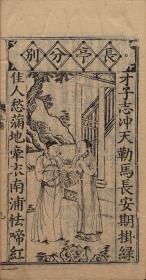 長亭分別
才子志冲天勒馬長安期掛綠
佳人愁蒲地牽衣南浦怯啼紅